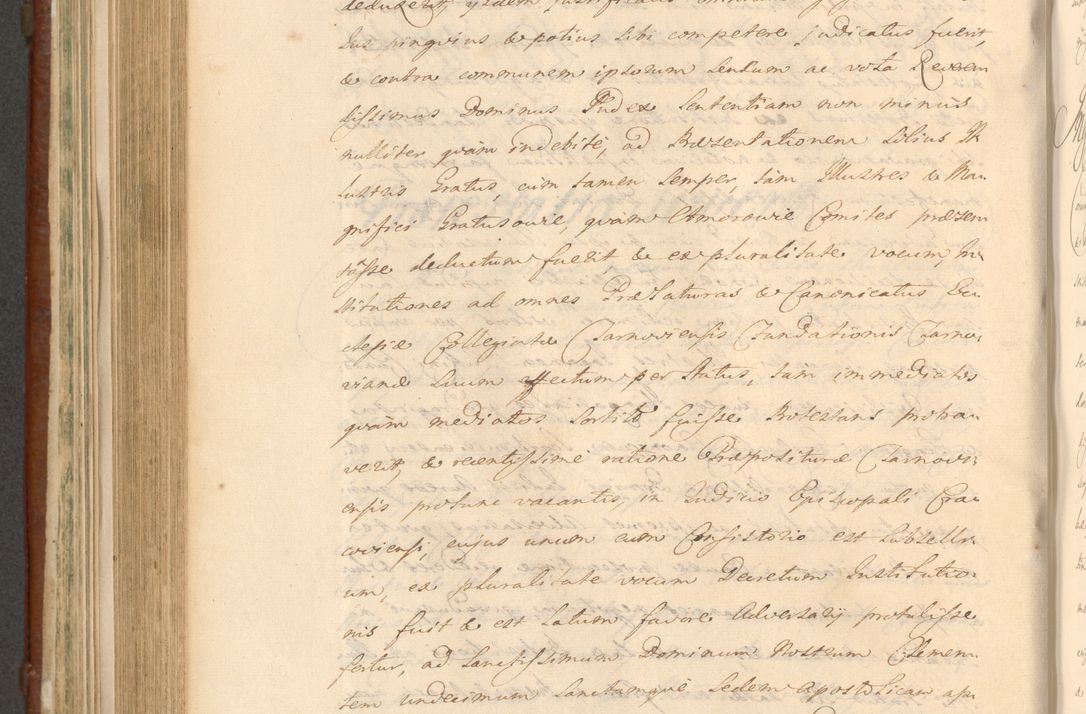 Jus pinguius & potius sibi competere judicatus fuerit,
& contra communem ipsorum sensum ac vota Reveren
dissimus Dominus Judex Sententiam non minus
nulliter quàm indebitè, ad Præsentationem solius Il
lustris Gratus, cùm tamen semper, tàm Illustres & Ma
gnifici Gratusowie, quàm Amorowie Comites præsen
tâsse deductum fuerit & ex pluralitate vocum, In
stitutiones ad omnes Prælaturas & Canonicatus Ec
clesiæ Collegiatæ Tarnoviensis Fundationis Tarno
vianæ suum effectum per Status, tàm immediatos
quàm mediatos sortitos fuisse Protestans proba
verit, & recentissime ratione Præpositurae Tarnovi
ensis protunc vacantis, in Judicio Episcopali Cra
coviensi, cujus unum cum Consistorio est subselli
um, ex pluralitate vocum Decretum Institutio
nis fuit & est latum favore Adversarij protulisse
fertur, ad Sanctissimum Dominum Nostrum Clemen
tem undecimum Sanctamque Sedem Apostolicam ap